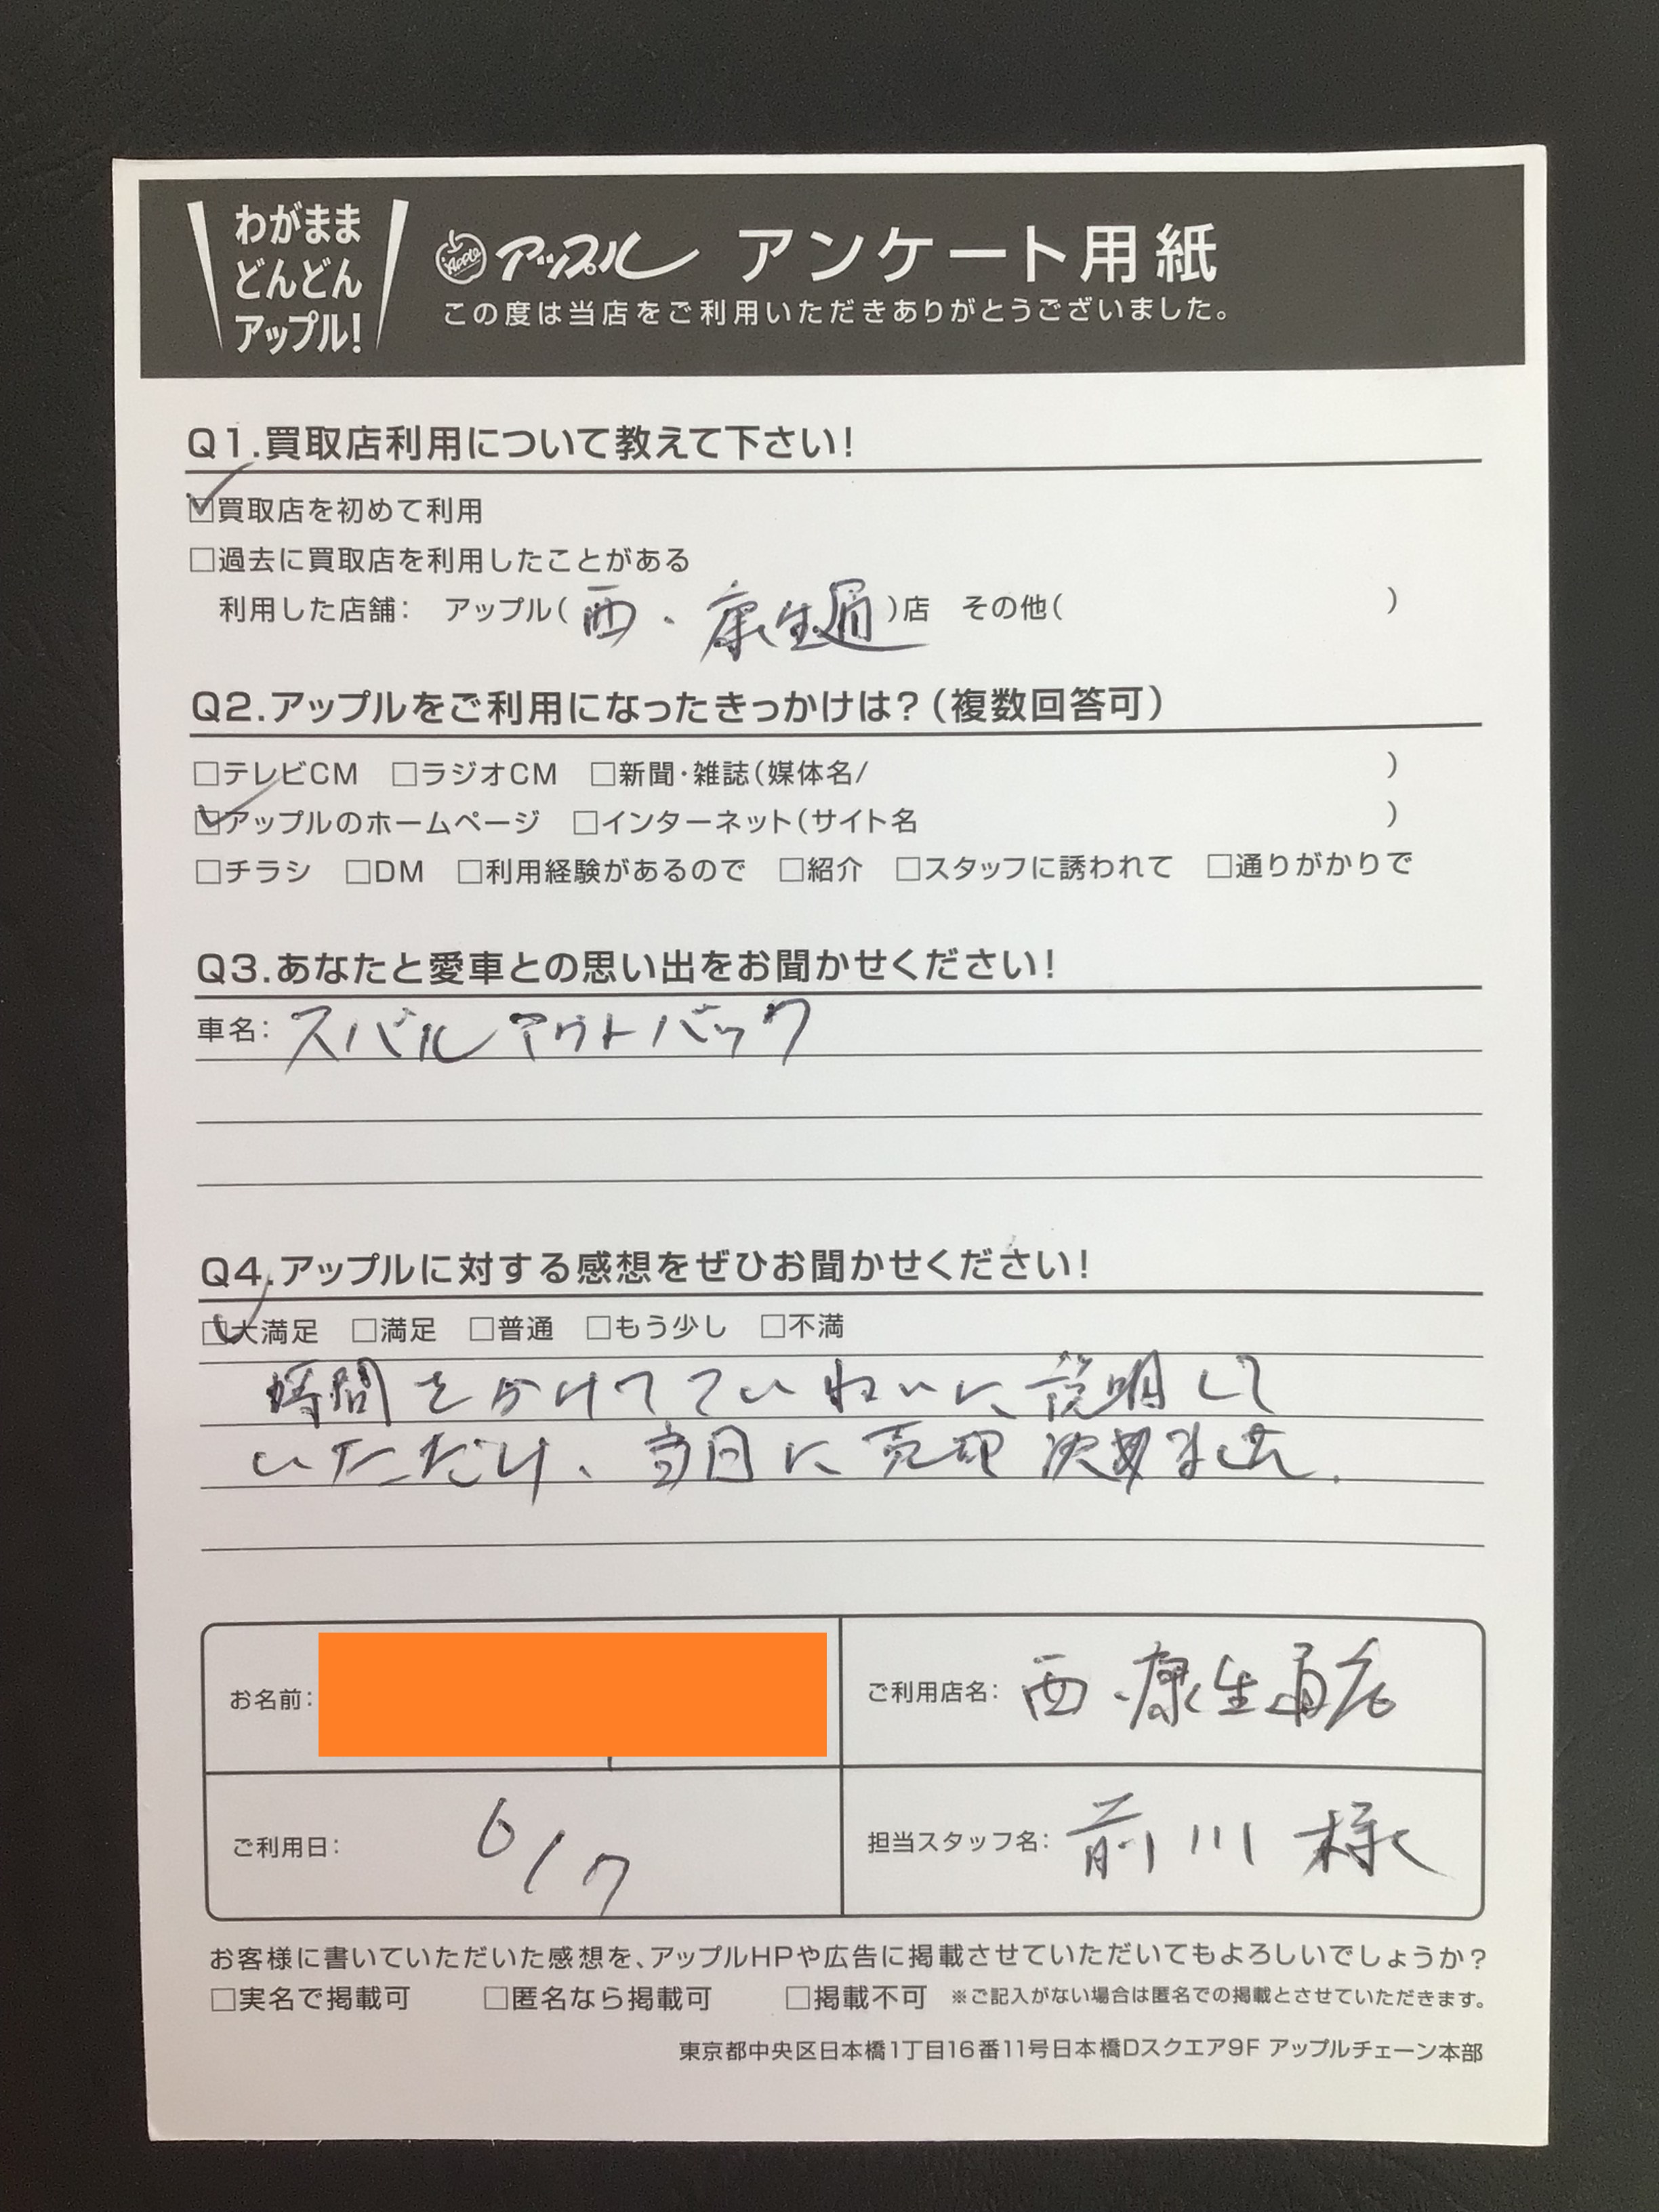 わがまま
どんどん
アップル!
Apple アップル アンケート用紙
この度は当店をご利用いただきありがとうございました。
Q1.買取店利用について教えて下さい!
☑買取店を初めて利用
□過去に買取店を利用したことがある
利用した店舗: アップル(西・康生通)店 その他( )
Q2.アップルをご利用になったきっかけは?(複数回答可)
□テレビCM □ラジオCM □新聞・雑誌(媒体名/ )
☑アップルのホームページ □インターネット(サイト名 )
□チラシ □DM □利用経験があるので □紹介 □スタッフに誘われて □通りがかりで
Q3.あなたと愛車との思い出をお聞かせください!
車名: スバル アウトバック
Q4.アップルに対する感想をぜひお聞かせください!
☑大満足 □満足 □普通 □もう少し □不満
時間をかけてていねいに説明して
いただけ、当日に売却決めました.
お名前:
ご利用店名: 西・康生通店
ご利用日: 6/7
担当スタッフ名: 前川様
お客様に書いていただいた感想を、アップルHPや広告に掲載させていただいてもよろしいでしょうか?
□実名で掲載可 □匿名なら掲載可 □掲載不可 ※ご記入がない場合は匿名での掲載とさせていただきます。
東京都中央区日本橋1丁目16番11号日本橋Dスクエア9F アップルチェーン本部